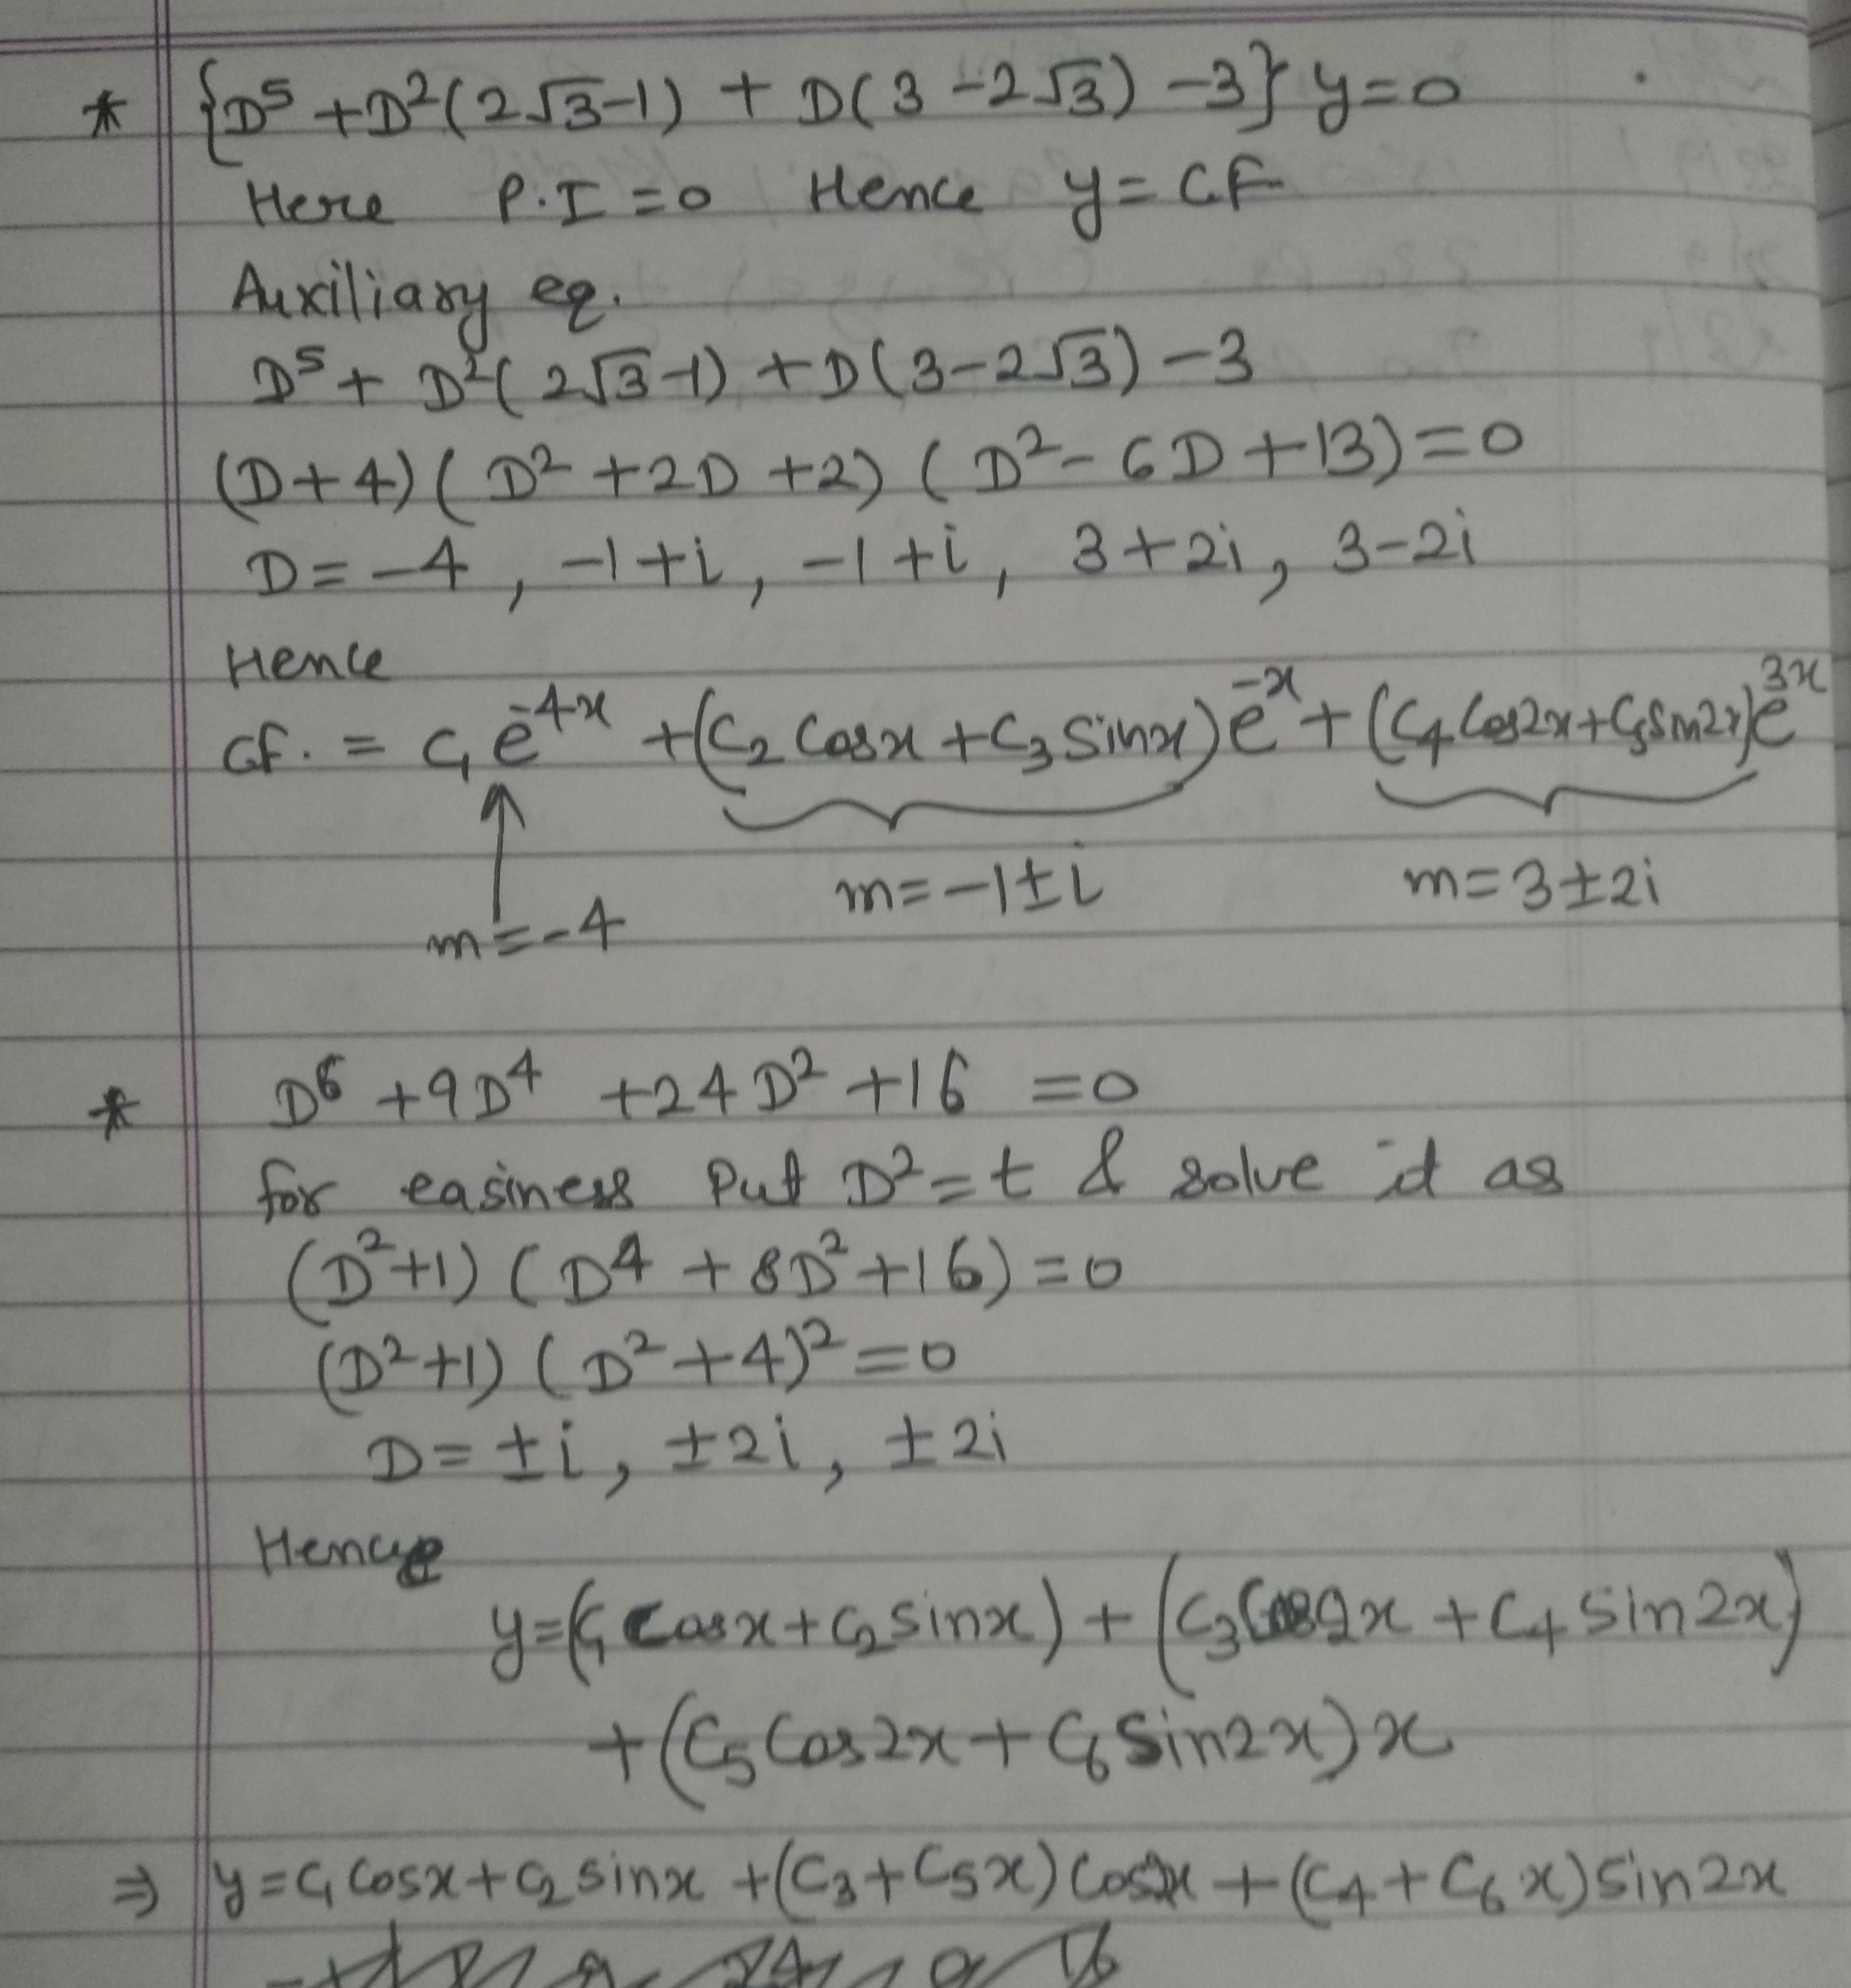 * {D⁵ + D²(2√3-1) + D(3-2√3) -3} y=0
Here P.I =0 Hence y= CF
Auxiliary eq.
D⁵ + D²(2√3-1) + D(3-2√3) -3
(D+4)( D² +2D +2) ( D² - 6D +13) =0
D = -4 , -1+i, -1+i, 3+2i, 3-2i
Hence
CF. = C₁e⁻⁴ˣ +(C₂ Cosx + C₃ Sinx)e⁻ˣ + (C₄ Cos2x + C₅Sin2x)e³ˣ
m=-1±i m=3±2i
m=-4
* D⁶ +9D⁴ +24D² +16 =0
for easiness Put D²=t & solve it as
(D²+1) ( D⁴ + 8D² +16) =0
(D²+1) ( D² +4)² =0
D= ±i, ±2i, ±2i
Hence
y=(C₁ Cosx + C₂ sinx) + (C₃Cos2x + C₄ Sin2x)
+ (C₅ Cos2x + C₆ Sin2x) x
⇒ y = C₁ Cosx + C₂ sinx + (C₃ + C₅x) Cos2x + (C₄ + C₆x) Sin2x